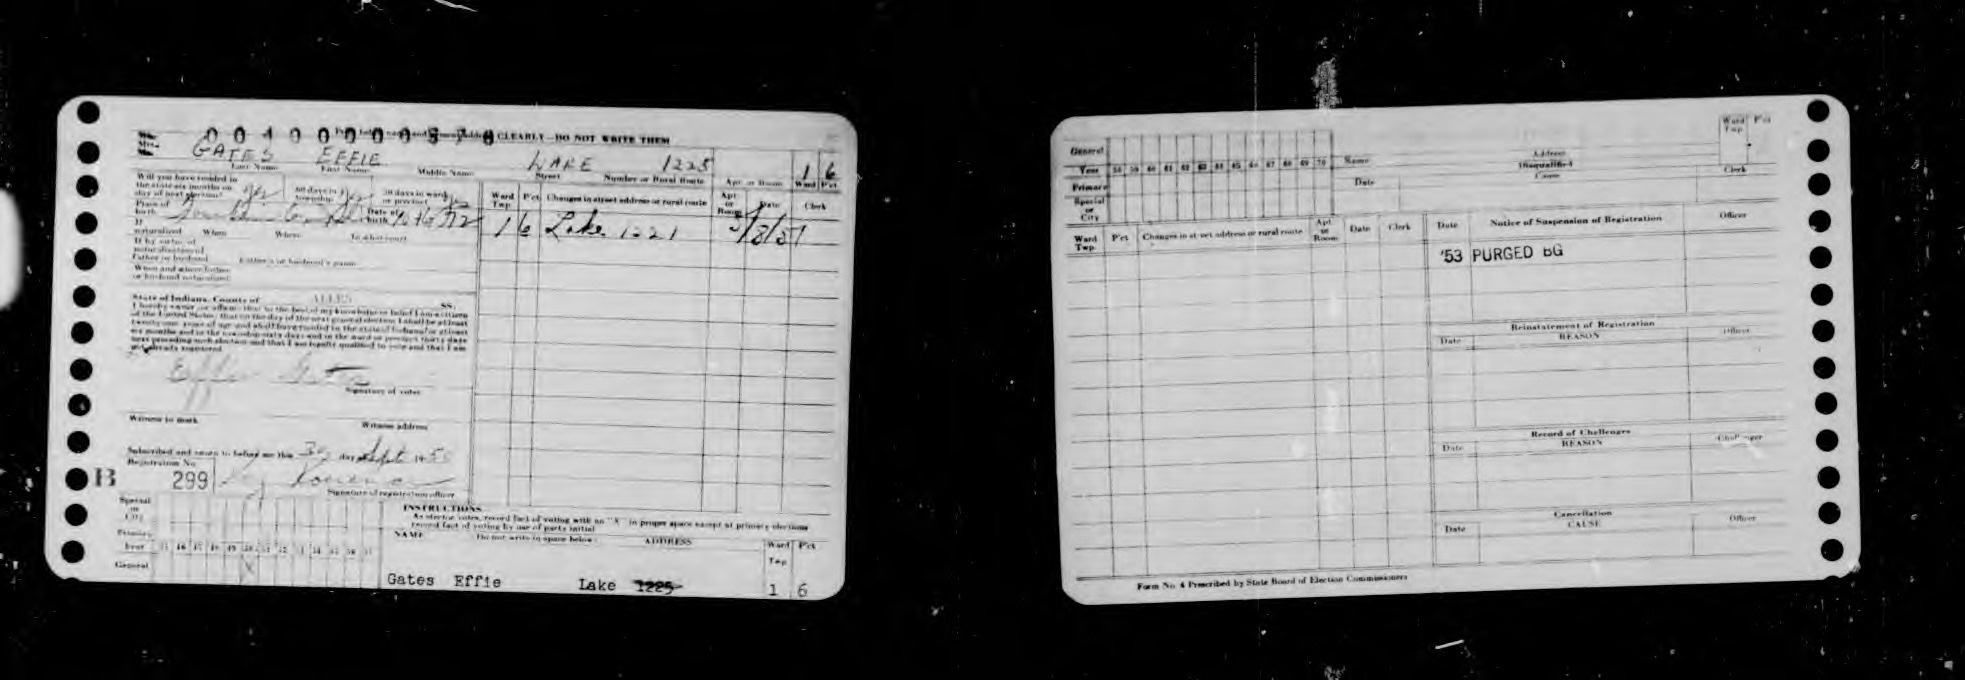 CLEARLY—DO NOT WRITE THEM
GATES EFFIE LAKE 1225 1 6
Last Name First Name Middle Name Street Number or Rural Route Apt. or Room Ward P'ct
Will you have resided in the state six months on day of next election? 60 days in township 30 days in ward or precinct
Ward Twp. P'ct Changes in street address or rural route Apt or Room Date Clerk
Place of birth Date of birth
1 6 Lake 1221
If naturalized When Where In what court
If by virtue of naturalization of father or husband Father's or husband's name
When and where father or husband naturalized
State of Indiana, County of ALLEN SS
I hereby swear or affirm that to the best of my knowledge or belief I am a citizen
of the United States; that on the day of the next general election I shall be at least
twenty-one years of age and shall have resided in the state of Indiana for at least
six months and in the township sixty days and in the ward or precinct thirty days
next preceding such election and that I am legally qualified to vote and that I am
not already registered
Effie Gates
Signature of voter
Witness to mark Witness address
Subscribed and sworn to before me this day Sept 1950
Registration No.
B 299
Signature of registration officer
Special or City
Primary
Year
General
INSTRUCTIONS
As elector votes, record fact of voting with an "X" in proper space except at primary elections
record fact of voting by use of party initial
NAME Do not write in space below ADDRESS Ward Twp P'ct
Gates Effie Lake 1225 1 6
General
Year 58 59 60 61 62 63 64 65 66 67 68 69 70
Primary
Special or City
Name Address
Disqualified
Date Cause Clerk
Ward Twp P'ct
Ward Twp. P'ct Changes in street address or rural route Apt or Room Date Clerk
Date Notice of Suspension of Registration Officer
'53 PURGED BG
Reinstatement of Registration
Date REASON Officer
Record of Challenges
Date REASON Challenger
Cancellation
Date CAUSE Officer
Form No. 4 Prescribed by State Board of Election Commissioners